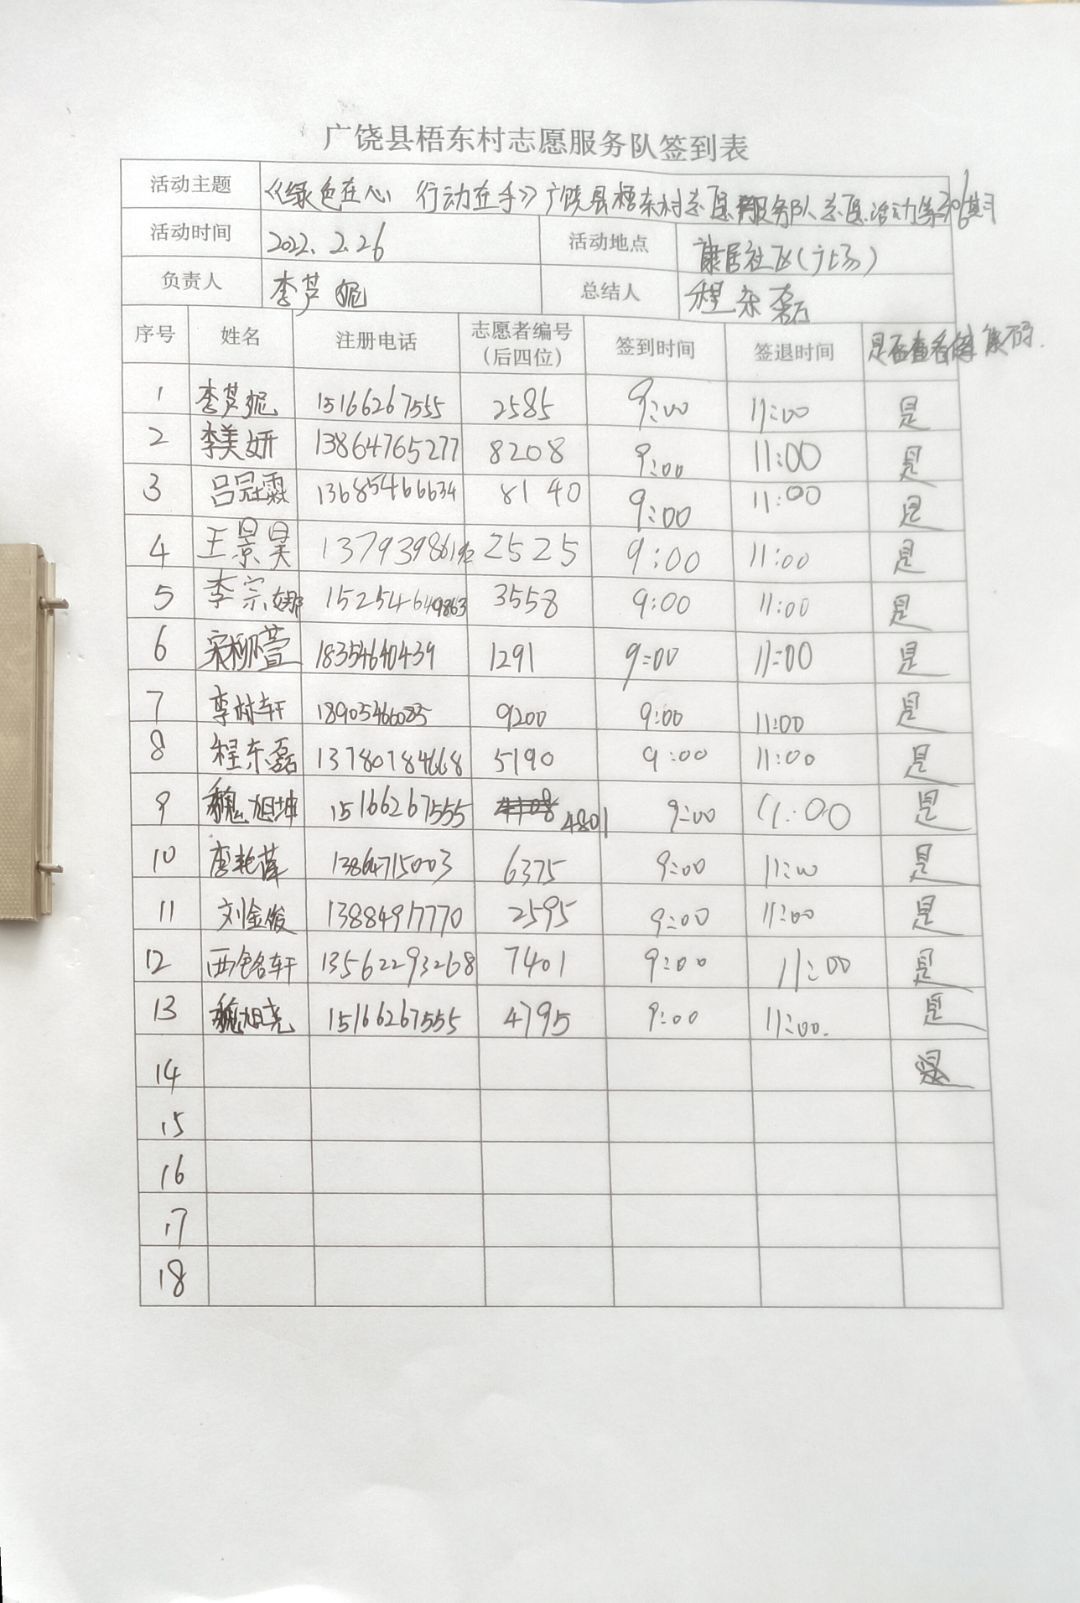 广饶县梧东村志愿服务队签到表
活动主题 《绿色在心 行动在手》广饶县梧东村志愿服务队志愿活动第306期
活动时间 2022.2.26 活动地点 康居社区(广场)
负责人 李芦妮 总结人 程东磊
序号 姓名 注册电话 志愿者编号(后四位) 签到时间 签退时间 是否查看健康码.
1 李芦妮 15166267555 2585 9:00 11:00 是
2 李美妍 13864765277 8208 9:00 11:00 是
3 吕冠霖 13685466634 8140 9:00 11:00 是
4 王景昊 2525 9:00 11:00 是
5 李宗娜 3558 9:00 11:00 是
6 18354640439 1291 9:00 11:00 是
7 李树轩 9200 9:00 11:00 是
8 程东磊 13780784668 5190 9:00 11:00 是
9 魏旭坤 15166267555 4801 9:00 11:00 是
10 13864715003 6375 9:00 11:00 是
11 刘金俊 13884917770 2595 9:00 11:00 是
12 西铭轩 13562293268 7401 9:00 11:00 是
13 魏旭尧 15166267555 4795 9:00 11:00. 是
14
15
16
17
18